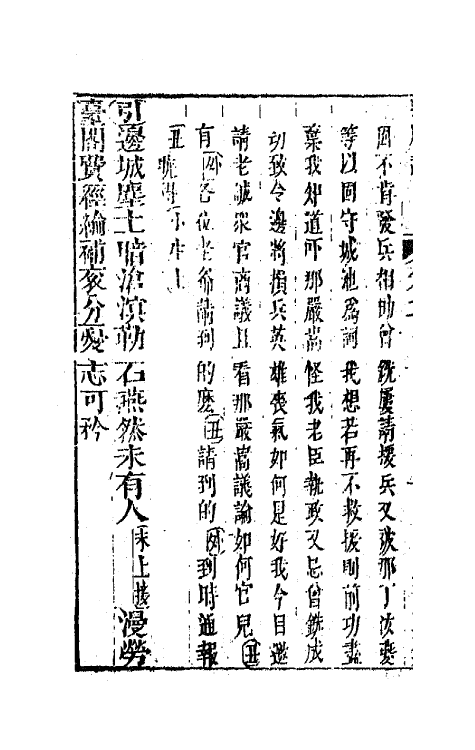 固不肯發兵相助曾銑屢請援兵又被那丁汝夔
等以固守城池為詞我想若再不救援則前功盡
棄我知道吓那嚴嵩怪我老臣執政又忌曾銑成
功致令邊將損兵英雄喪氣如何是好我今日邀
請老誠眾官商議且看那嚴嵩議論如何官兒丑
有外各位老爺請到的麽丑請到的外到時通報
丑曉得小生上
引邊城塵土暗滄溟勒石燕然未有人末上接漫勞
臺閣費經綸補袞分憂志可矜